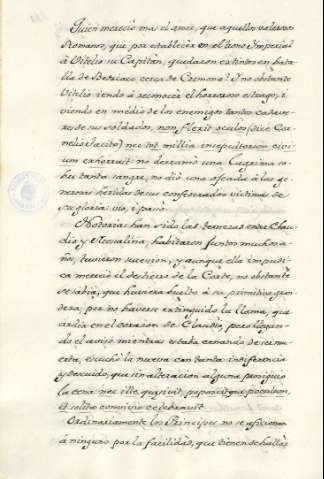 Quien mereciò mas el amor, que aquellos valerosos
Romanos, que por establecer en el trono Imperial
à Vitelio su Capitàn, quedaron extintos en bata-
lla de Bedriaco, cerca de Cremona? I no obstante
Vitelio iendo à reconocer el horroroso estrago, i
viendo en médio de los enemigos tantos cadave-
res de sus soldados, non flexit oculos (dice Cor-
nelio Tacito) nec tot millia insepultorum civi-
um exhorruit: no derramò una lagrima so-
bre tanta sangre, no diò una ojeada à las ge-
nerosas héridas de sus consagradas victimas de
su gloria: vió, i pasò.
Notorias han sido las ternezas entre Clau-
dio y Mesalina, habitaron juntos muchos a-
ños, tuvieron sucesion, y aunque ella impudi-
ca mereciò el destierro de la Corte, no obstante
se sabia, que huviera buelto à su primitiva gran-
deza, por no haverse extinguido la llama, que
ardia en el corazon de Claudio, pero llegan-
do el aviso mientras estaba cenando de ser mu-
erta, escuchò la nueva con tanta indiferencia
y descuido, que sin alteracion alguna prosiguiò
la cena: nec ille quæsivit, poposcitque poculum,
et solita convivio celebravit.
Ordinariamente los Principes no se aficionan
à ninguno por la facilidad, que tienen de hallar